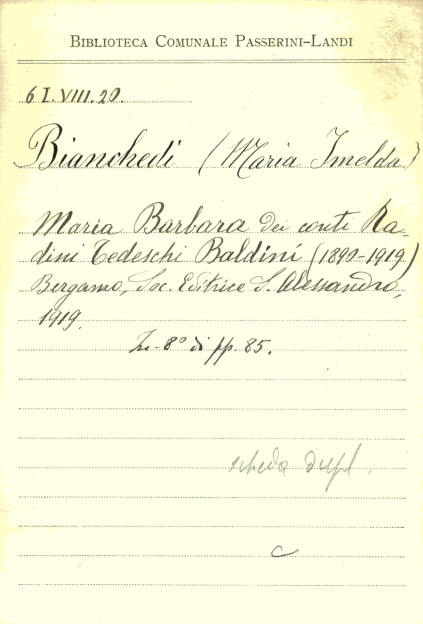 BIBLIOTECA COMUNALE PASSERINI-LANDI
6 I.VIII.20.
Bianchedi (Maria Imelda)
Maria Barbara dei conti Ra-
dini Tedeschi Baldini (1890-1919)
Bergamo, Soc. Editrice S. Alessandro,
1919.
In-8° di pp. 85.
scheda dupl.
C